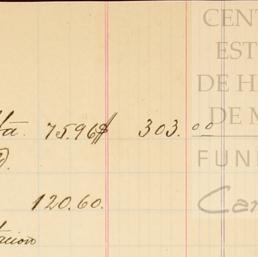 CENT
EST
DE H
DE M
ta. 75.96 303.00
FUN
Car
120.60.
tacion